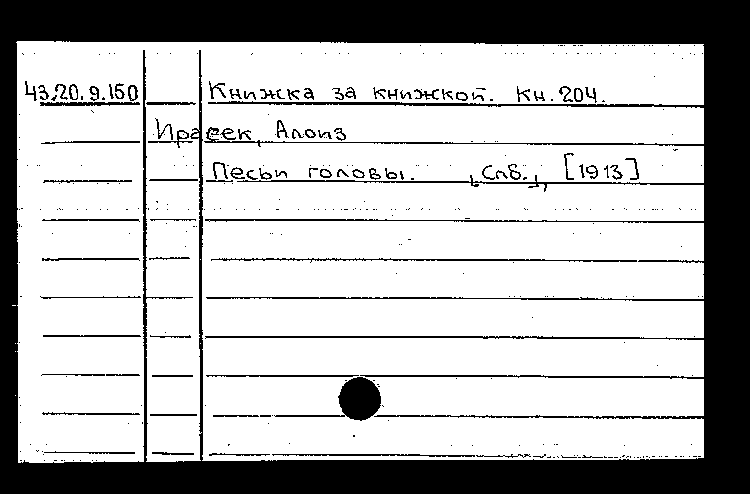 43.20.9.150 Книжка за книжкой. Кн. 204.
Ирасек, Алоиз
Песьи головы. Спб., [1913]